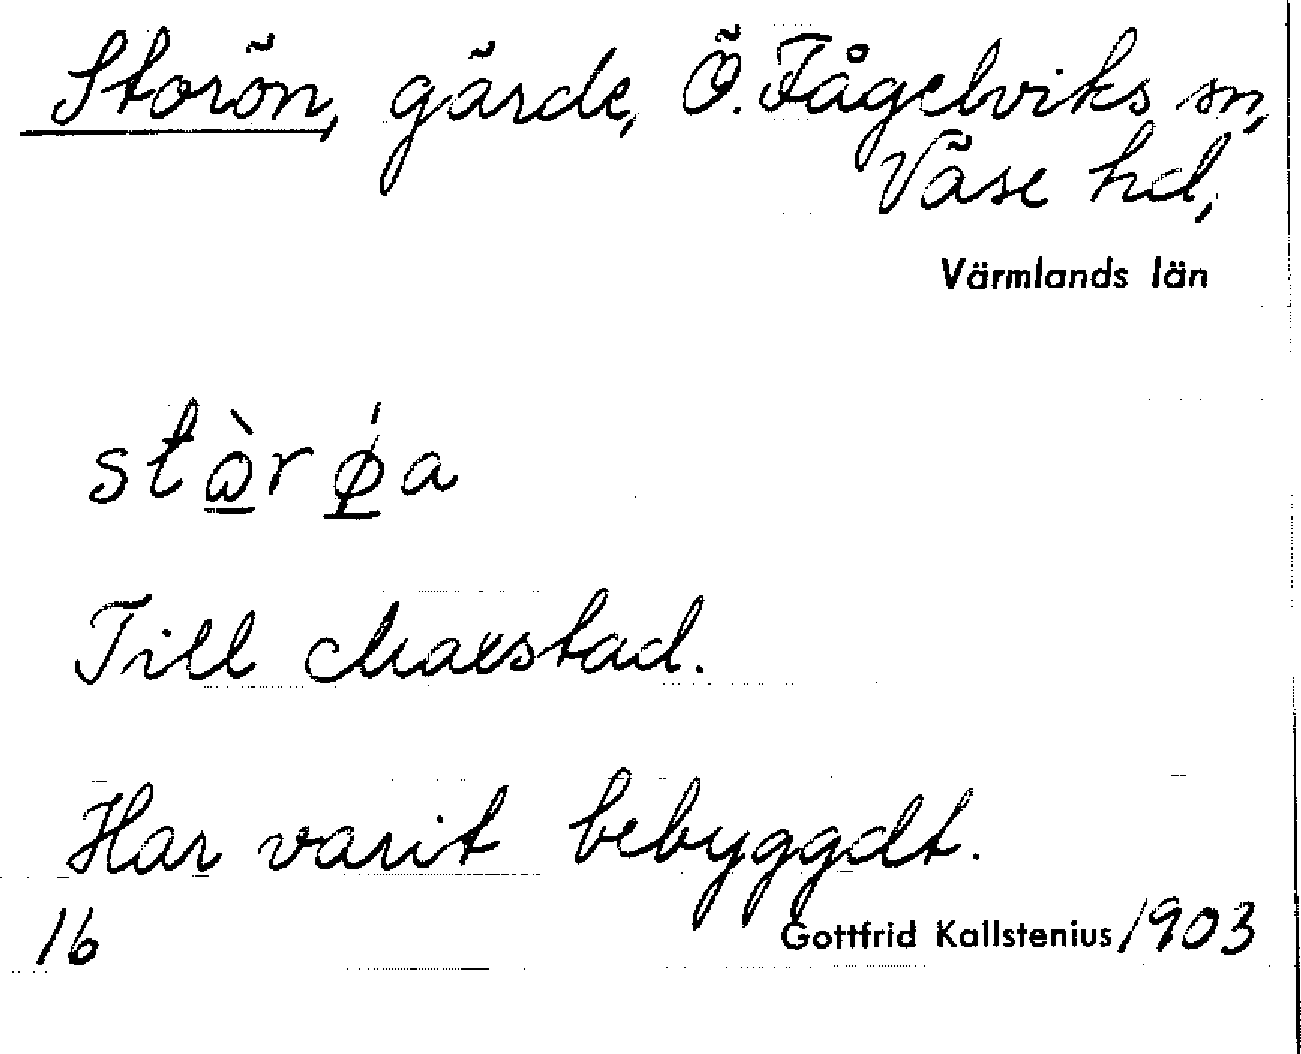 Storön, gärde, Ö. Fågelviks sn,
Väse hd,
Värmlands län
stὼr ǿa
Till Maxstad.
Har varit bebyggdt.
16 Gottfrid Kallstenius 1903